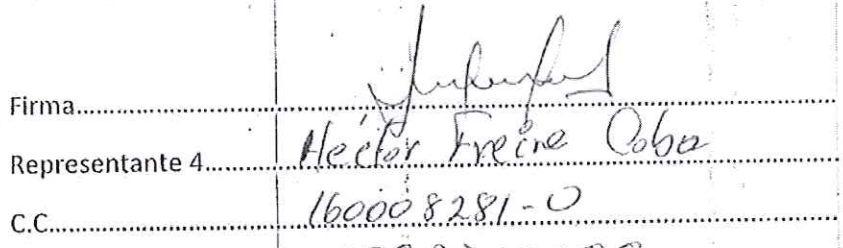 Firma
Representante 4 Héctor Freire Coba
C.C. 160008281-0